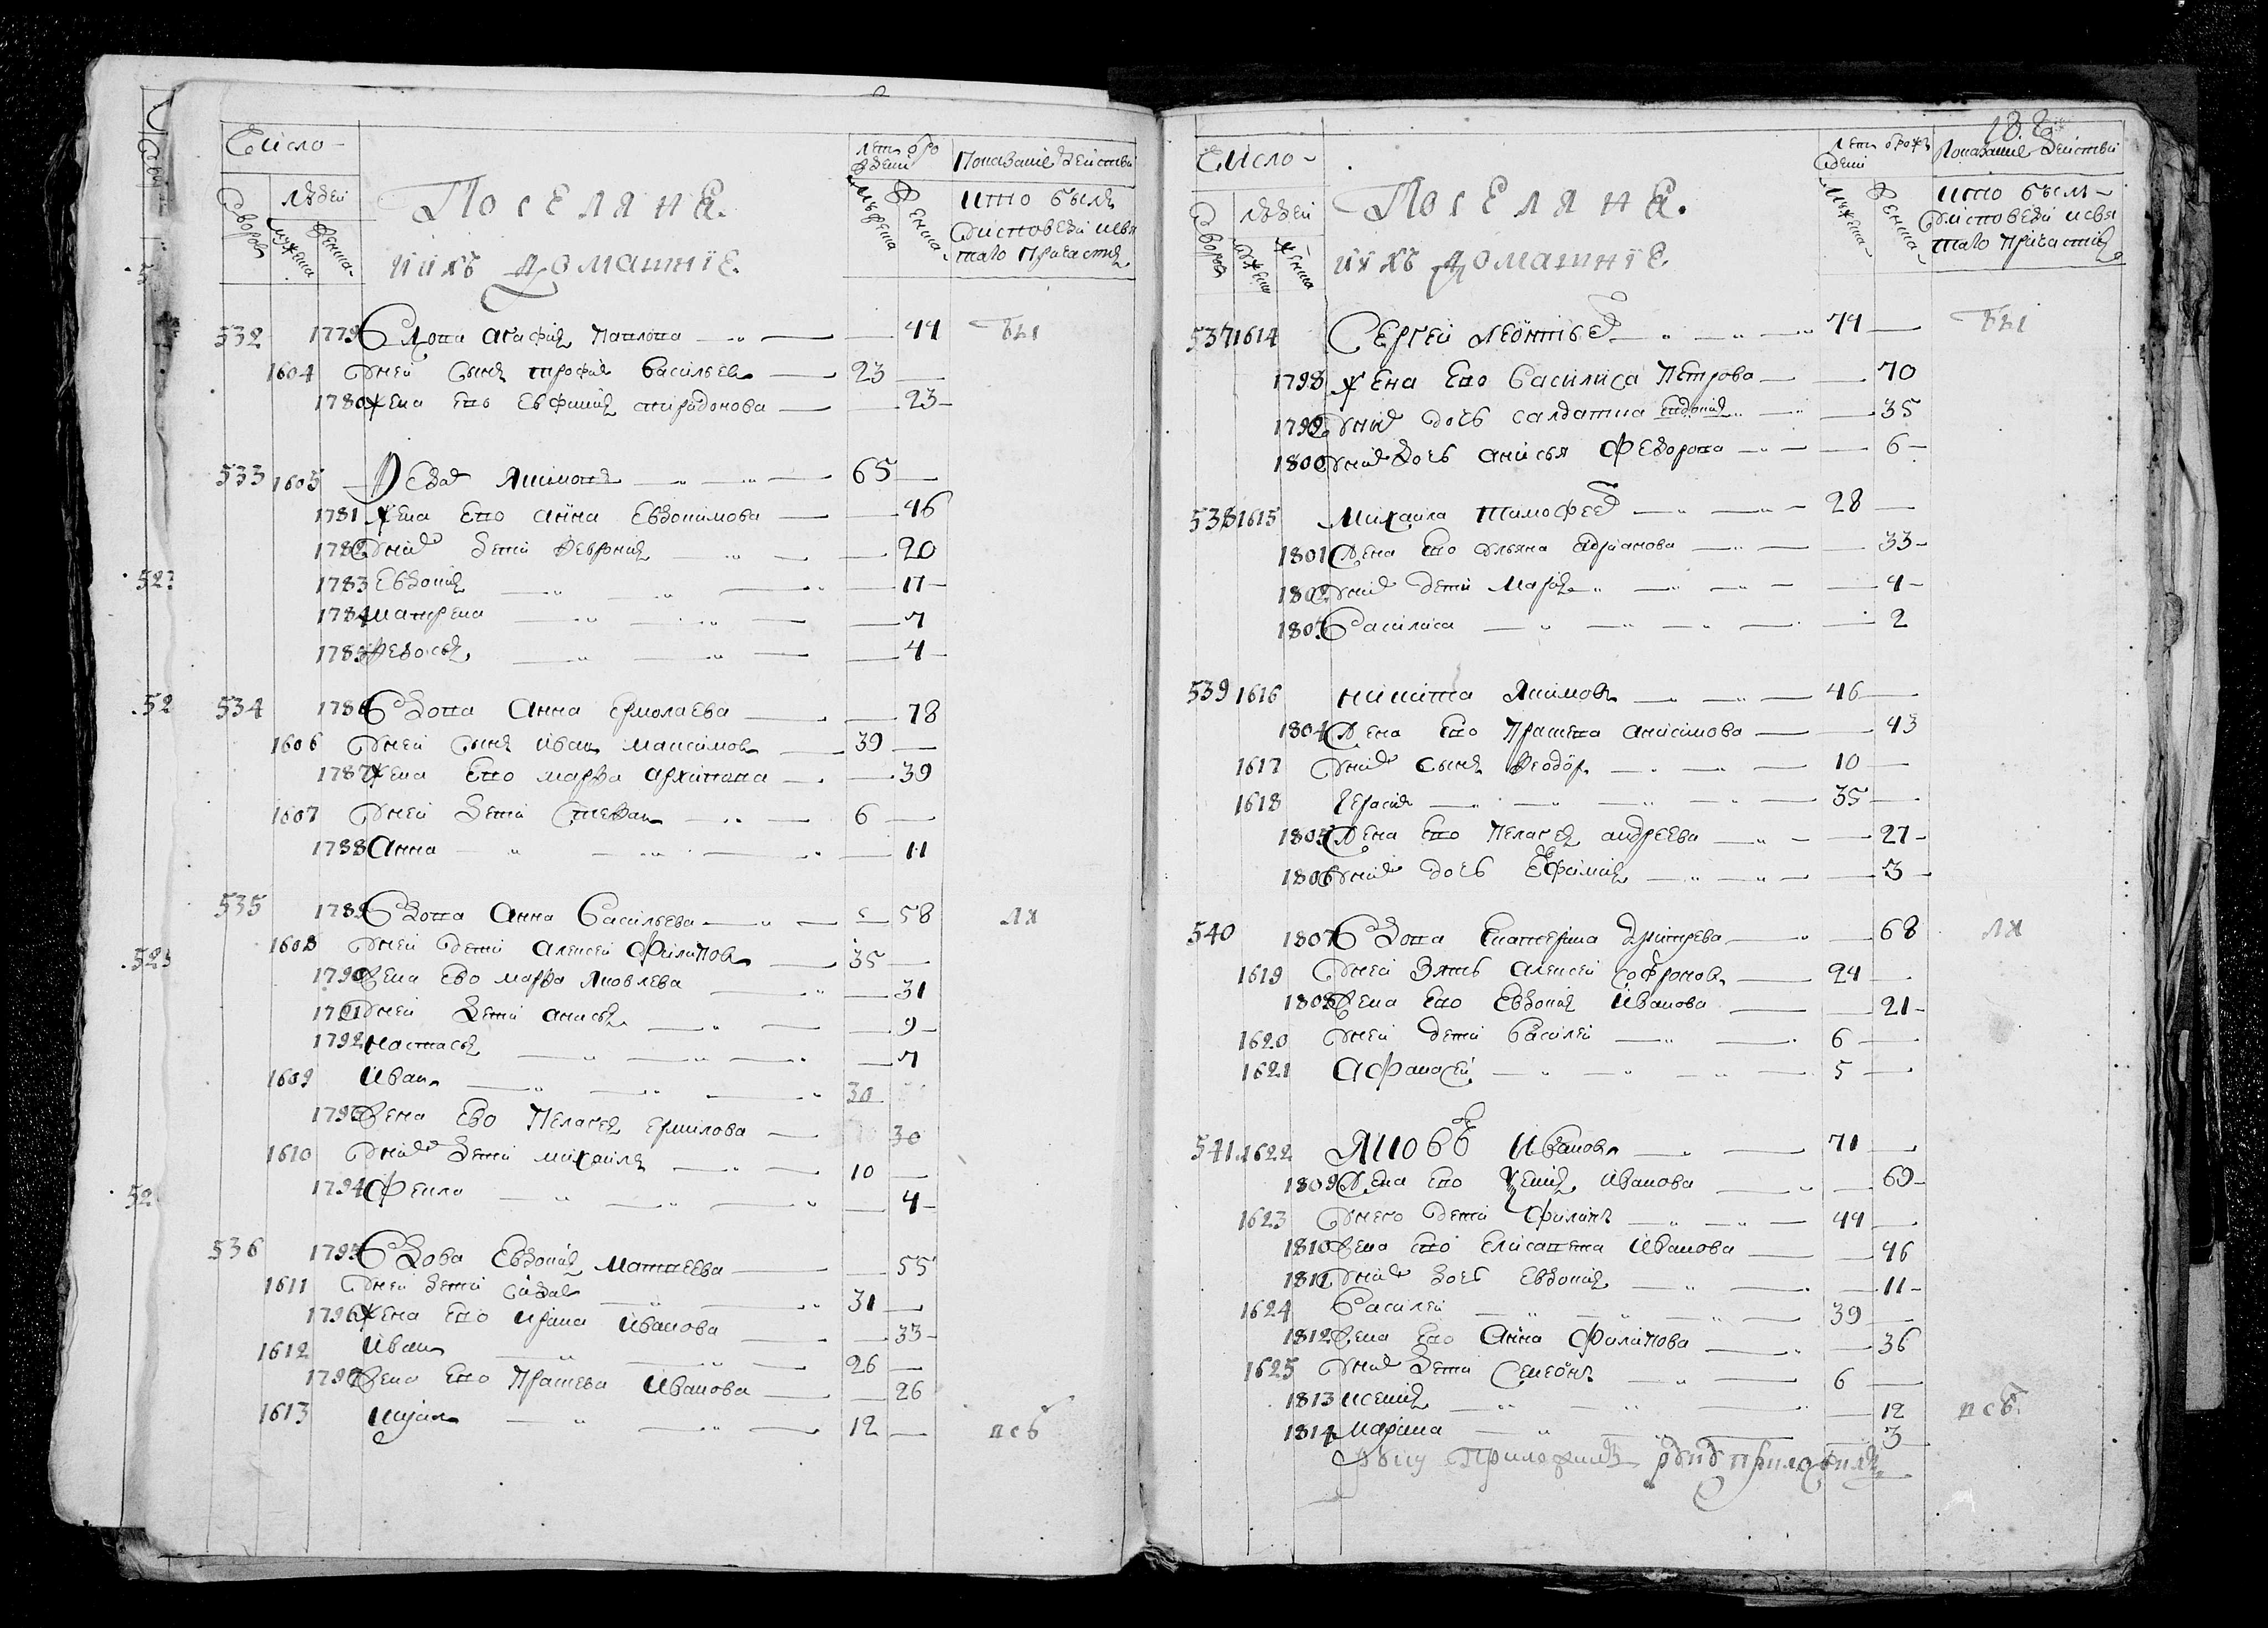 Число
Людей
Дворовъ
мужеска
женска
Поселяне.
и ихъ домашніе.
лета о рождени
мужеска
женска
Показание действи
кто былъ
у исповеди и свя
таго причастия
532 1779 Вдова Агафия Павлова 44 бы
1604 У ней сынъ Трофим Васильев 23
1780 Жена ево Евфимия Спиридонова 23
533 1605 Якимов 65
1781 Жена ево Анна Евдокимова 46
1782 У них дети Феврония 20
1783 Евдокия 17
1784 Матрена 7
1785 Федосья 4
534 1786 Вдова Анна Ермолаева 78
1606 У ней сынъ Иван Максимов 39
1787 Жена ево Марфа Архипова 39
1607 У ней дети Стефан 6
1788 Анна 11
535 1789 Вдова Анна Васильева 58 ля
1608 У ней дети Алексей Филипов 35
1790 Жена ево Марфа Яковлева 31
1791 У ней дети Анисья 9
1792 Настасья 7
1609 Иван 30
1793 Жена ево Пелагея Ермилова 30
1610 У них дети Михайла 10
1794 Фекла 4
536 1795 Вдова Евдокия Матвеева 55
1611 У ней дети 31
1796 Жена ево Ирина Иванова 33
1612 Иван 26
1797 Жена ево Прасковья Иванова 26
1613 12 псб
Число
Людей
Дворовъ
женска
Поселяне.
и ихъ домашніе.
лета о рожде
дени
мужеска
женска
Показание действи
кто былъ
у исповеди и свя
таго причастия
537 1614 Сергей Леонтьев 74 бы
1798 Жена ево Василиса Петрова 70
1799 У них дочь салдатка Евдокия 35
1800 У них дочь Анисья Федорова 6
538 1615 Михаила Тимофеев 28
1801 Жена ево Ульяна Адрианова 33
1802 У них дети Мария 4
1803 Василиса 2
539 1616 Никита Якимов 46
1804 Жена ево Анисимова 43
1617 У них сынъ Феодор 10
1618 Герасим 35
1805 Жена ево Пелагея Андреева 27
1806 У них дочь Ефимия 3
540 1807 Вдова Екатерина Дмитрева 68 ля
1619 У ней зять Алексей Софронов 24
1808 Жена ево Евдокия Иванова 21
1620 У ней дети Василей 6
1621 Афанасей 5
541 1622 Яковъ Иванов 71
1809 Жена ево Иванова 69
1623 У него дети Филипъ 44
1810 Жена ево Елисавета Иванова 46
1811 У них дочь Евдокия 11
1624 Василей 39
1812 Жена ево Анна Филипова 36
1625 У них дети Семеонъ 6
1813 Ксения 12 псб
1814 Марина 3
руку приложилъ